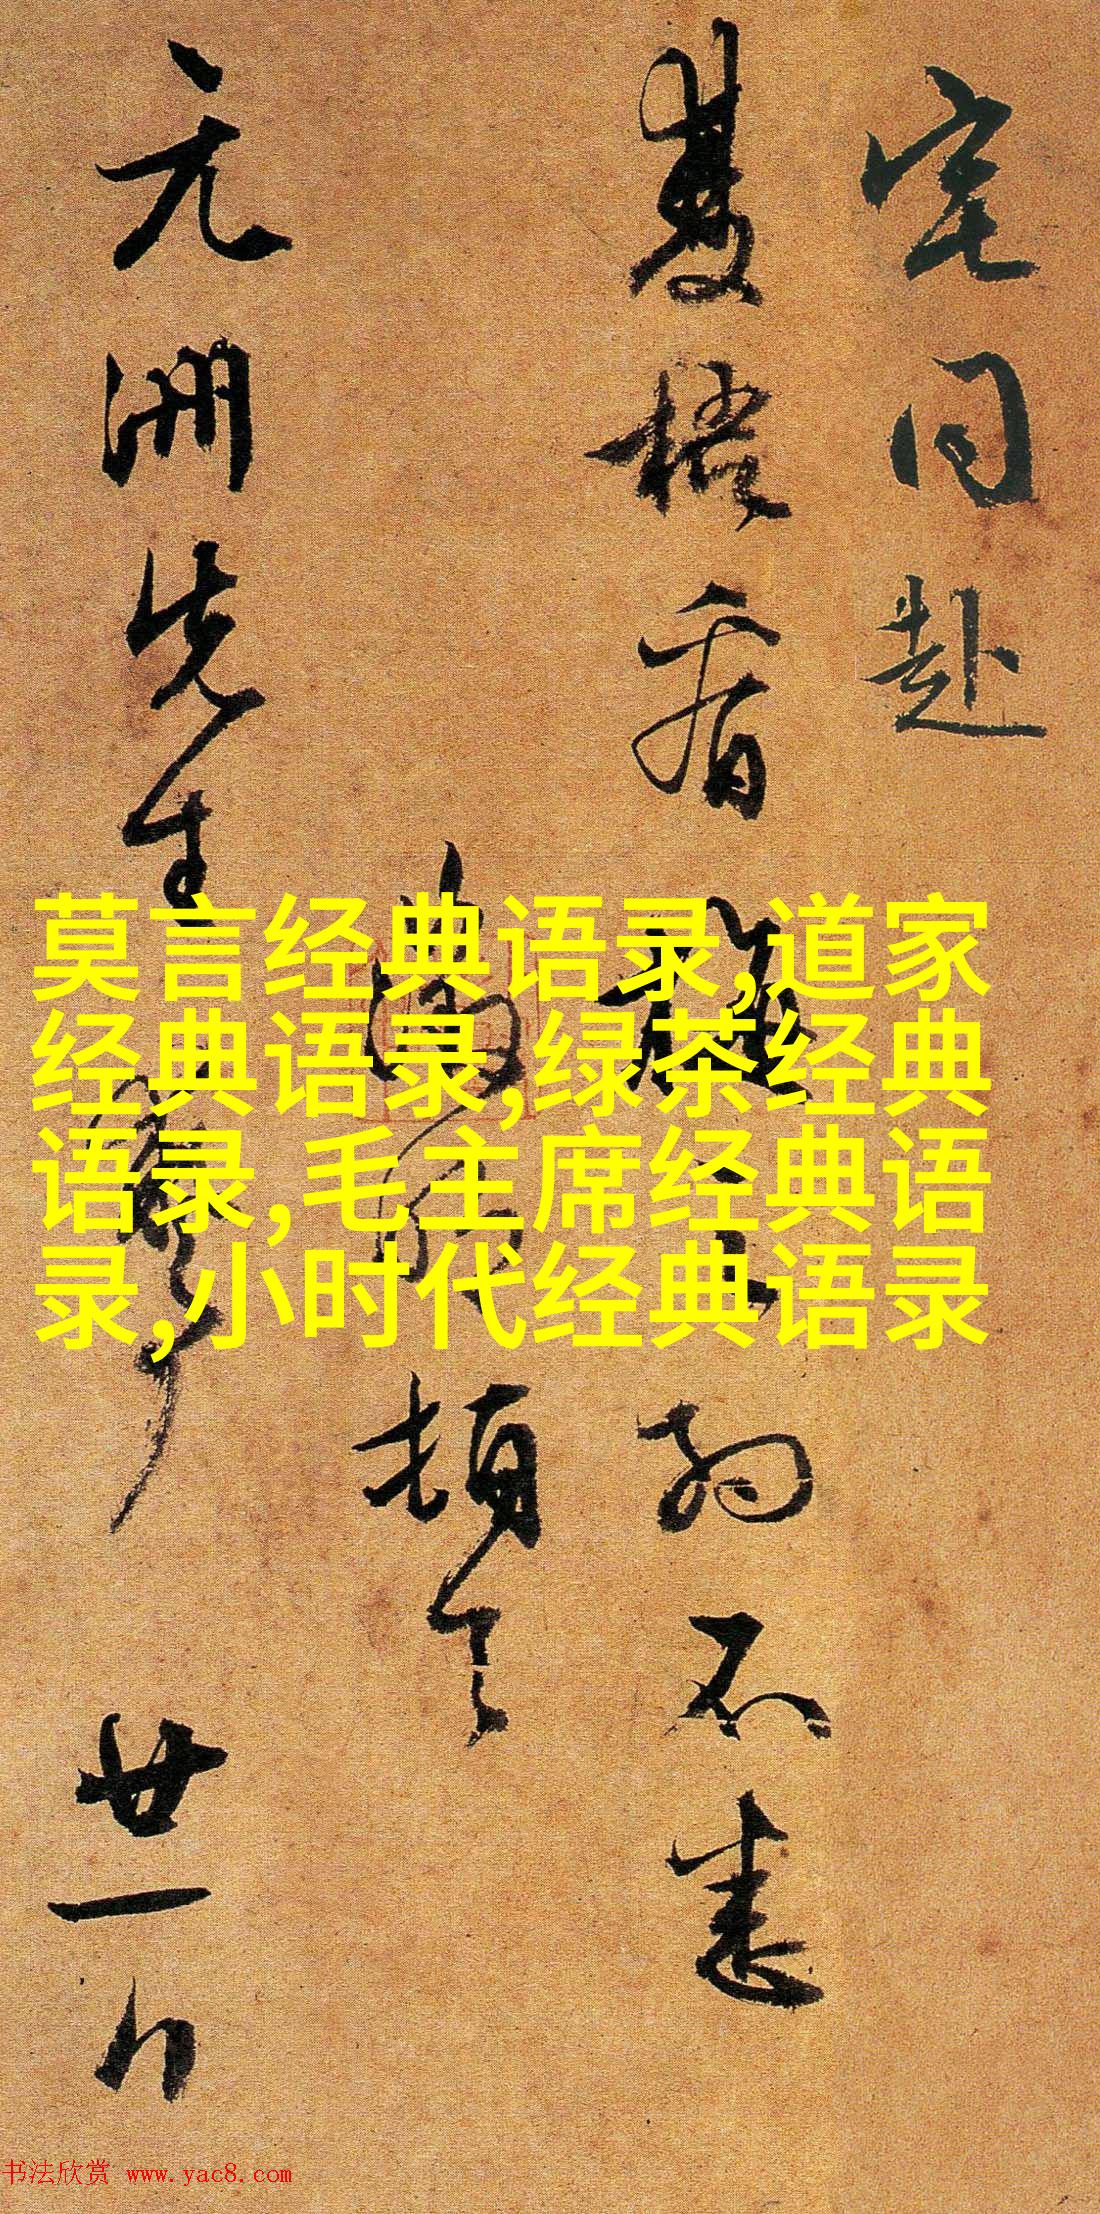 宅同赴
双梧看
初不悉
顿首
元洲先生
廿一日
莫言经典语录,道家
经典语录,绿茶经典
语录,毛主席经典语
录,小时代经典语录
书法欣赏 www.yac8.com